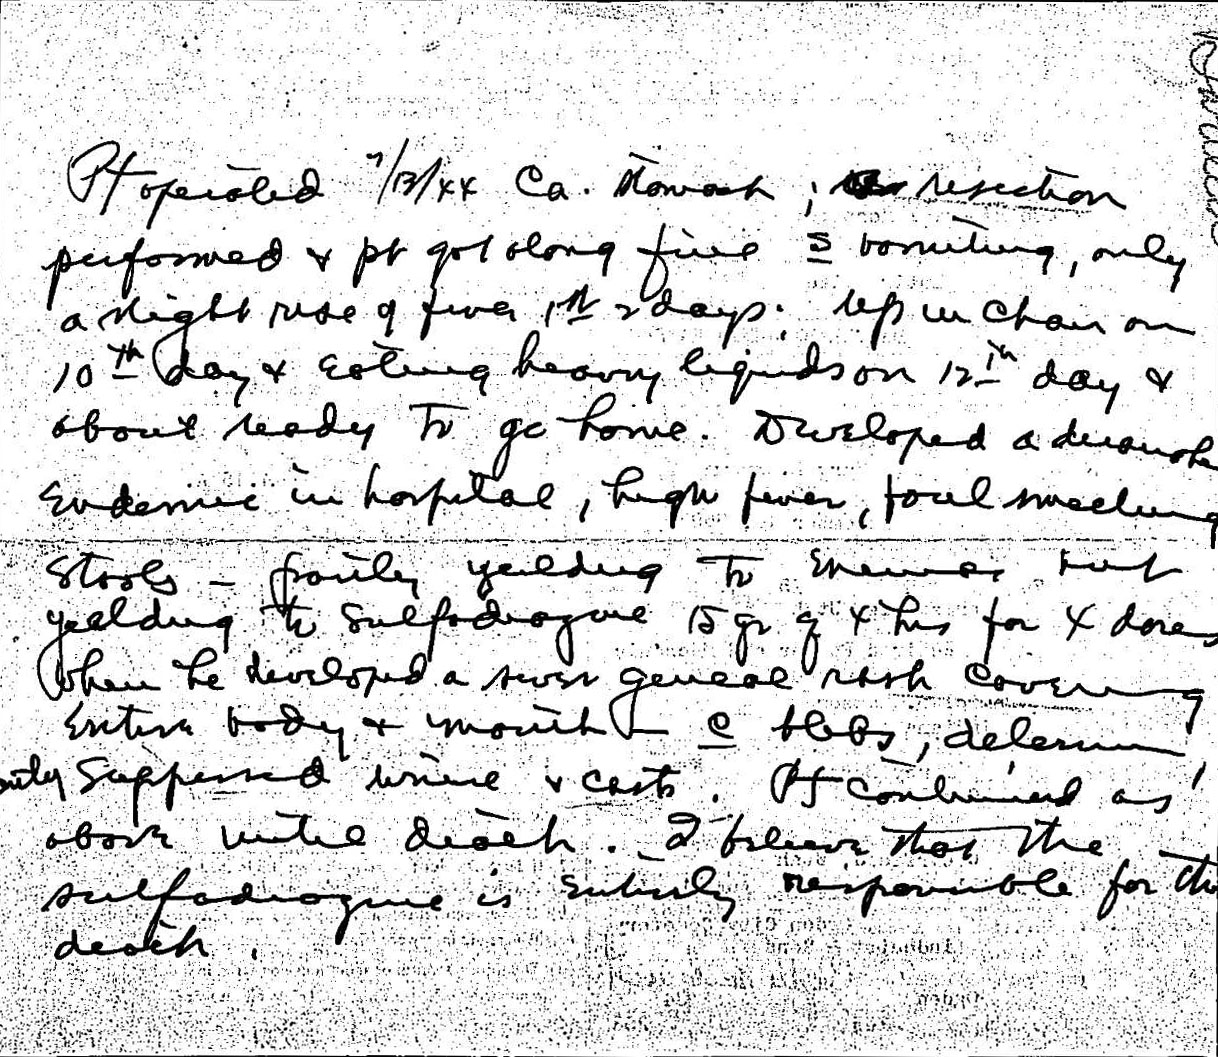 Pt operated 7/13/44 Ca. Stomach; resection
performed & pt got along fine s̄ vomiting, only
a slight rise of fever 1st 2 days. Up in chair on
10th day & Eating heavy liquids on 12th day &
about ready to go home. Developed a
Endemic in hospital, high fever, foul smelling
Stools – partly yielding to Enemas but
yielding to Sulfadiazine 15 gr q 4 hrs for 4 doses
When he developed a sever general rash covering
Entire body & mouth c̄ blebs, delerium,
Suppressed urine & casts. Pt continued as
above until death. I believe that the
sulfadiazine is Entirely responsible for the
death.